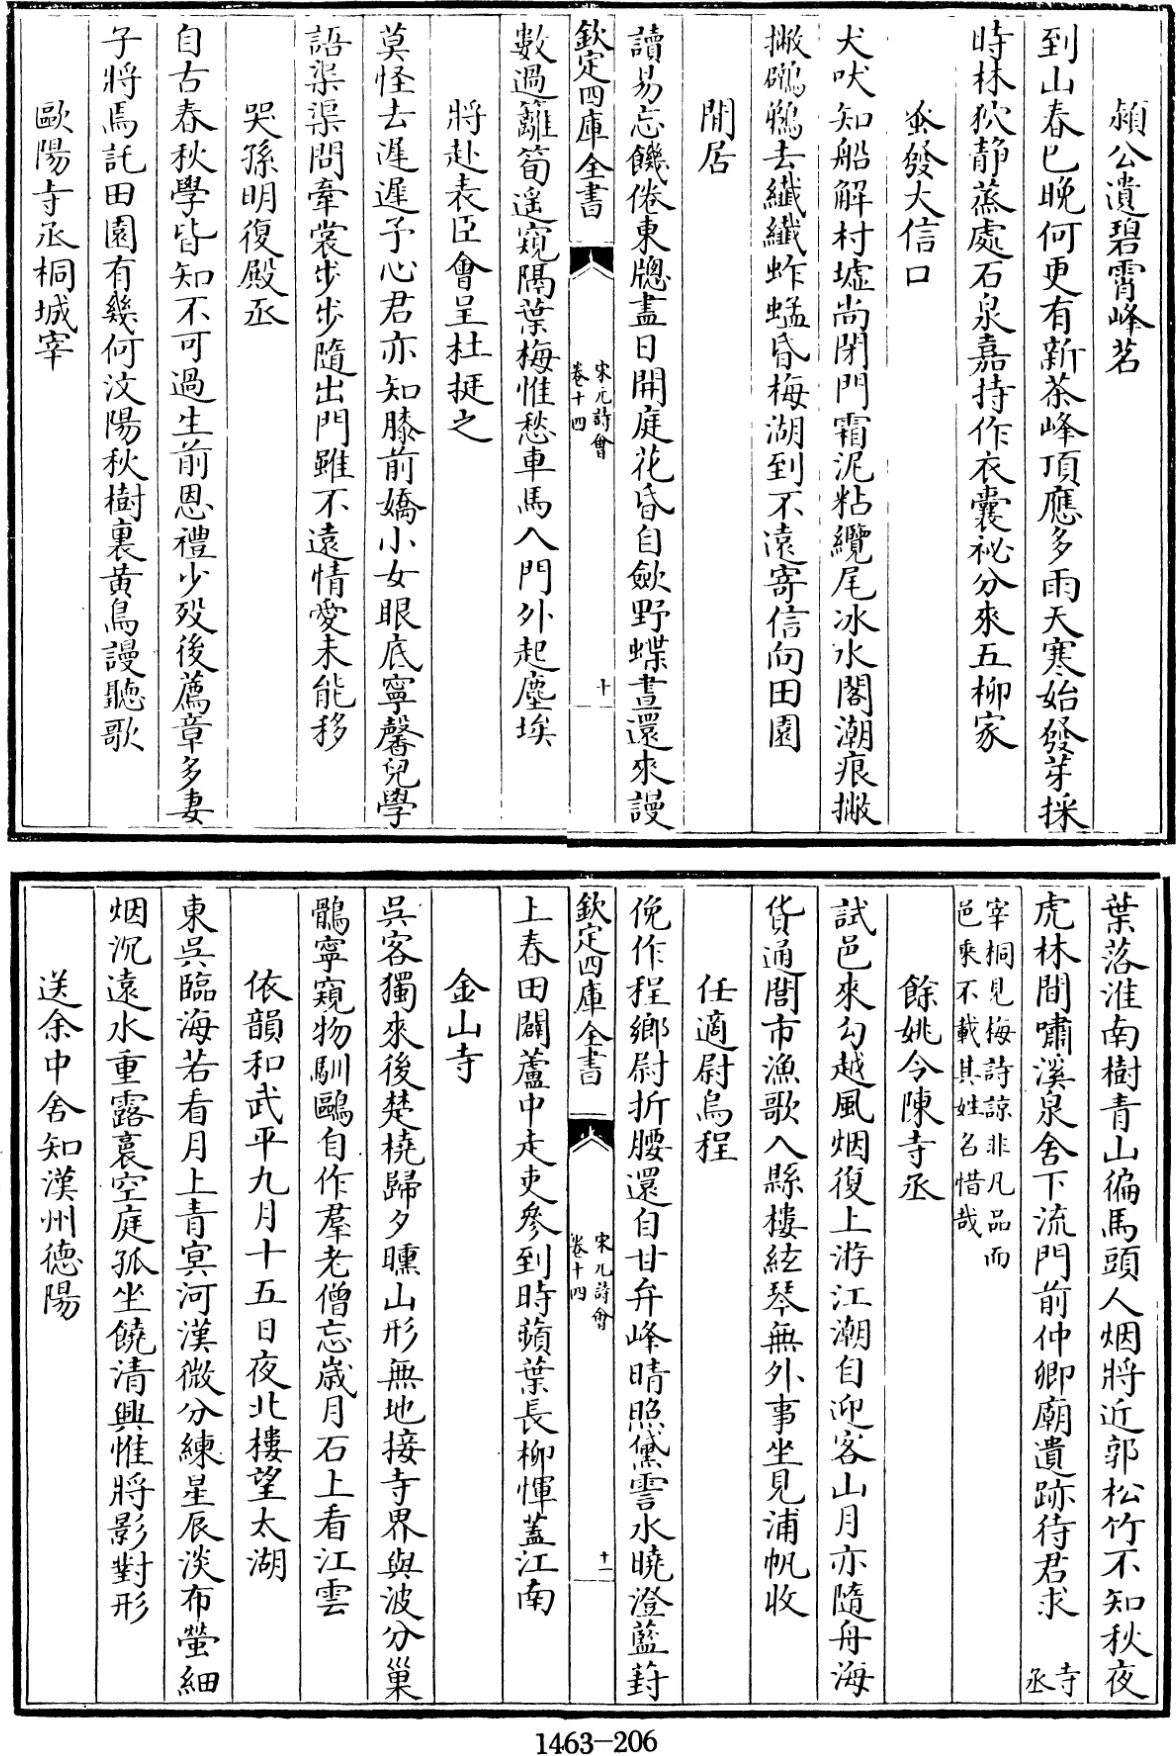 頴公遺碧霄峰茗
到山春已晚何更有新茶峰頂應多雨天寒始發芽採
時林狖靜蒸處石泉嘉持作衣囊祕分來五柳家
蚤發大信口
犬吠知船解村墟尚閉門霜泥粘纜尾冰水閣潮痕撇
撇鸂鶒去纖纖蚱蜢昏梅湖到不遠寄信向田園
閒居
讀易忘饑倦東牕盡日開庭花昏自歛野蝶晝還來謾
欽定四庫全書
宋元詩會
卷十四
十
數過籬筍遥窺隔葉梅惟愁車馬入門外起塵埃
將赴表臣會呈杜挺之
莫怪去遲遲予心君亦知膝前嬌小女眼底寧馨兒學
語渠渠問牽裳步步隨出門雖不遠情愛未能移
哭孫明復殿丞
自古春秋學皆知不可過生前恩禮少歿後薦章多妻
子將焉託田園有幾何汶陽秋樹裏黄鳥謾聽歌
歐陽寺丞桐城宰
葉落淮南樹青山徧馬頭人烟將近郭松竹不知秋夜
虎林間嘯溪泉舍下流門前仲卿廟遺跡待君求 寺丞
宰桐見梅詩諒非凡品而
邑乘不載其姓名惜哉
餘姚令陳寺丞
試邑來勾越風烟復上游江潮自迎客山月亦隨舟海
貨通閭市漁歌入縣樓絃琴無外事坐見浦帆收
任適尉烏程
俛作程鄉尉折腰還自甘弁峰晴照黛霅水曉澄藍葑
欽定四庫全書
宋元詩會
卷十四
十一
上春田闢蘆中走吏參到時蘋葉長柳惲蓋江南
金山寺
吳客獨來後楚橈歸夕曛山形無地接寺界與波分巢
鶻寧窺物馴鷗自作羣老僧忘歲月石上看江雲
依韻和武平九月十五日夜北樓望太湖
東吳臨海若看月上青冥河漢微分練星辰淡布螢細
烟沉遠水重露裛空庭孤坐饒清興惟將影對形
送余中舍知漢州德陽
1463-206